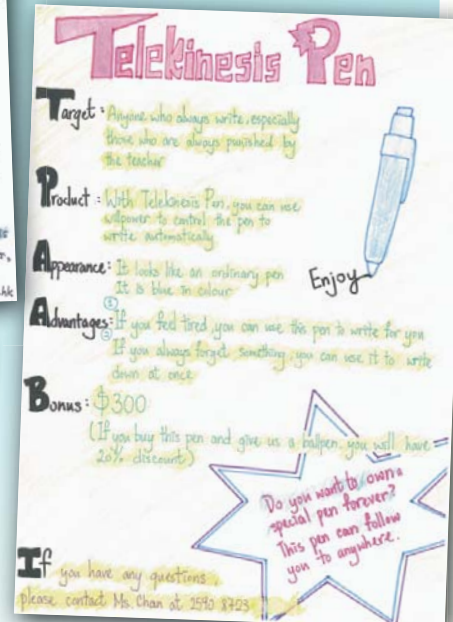 Telekinesis Pen
Target : Anyone who always write, especially
those who are always punished by
the teacher
Product : With Telekinesis Pen, you can use
willpower to control the pen to
write automatically
Appearance: It looks like an ordinary pen
It is blue in colour
Enjoy
Advantages: ① If you feel tired, you can use this pen to write for you
② If you always forget something, you can use it to write
down at once
Bonus: $300
(If you buy this pen and give us a ballpen, you will have
20% discount)
Do you want to own a
special pen forever?
This pen can follow
you to anywhere.
If you have any questions,
please contact Ms. Chan at 2590 8723